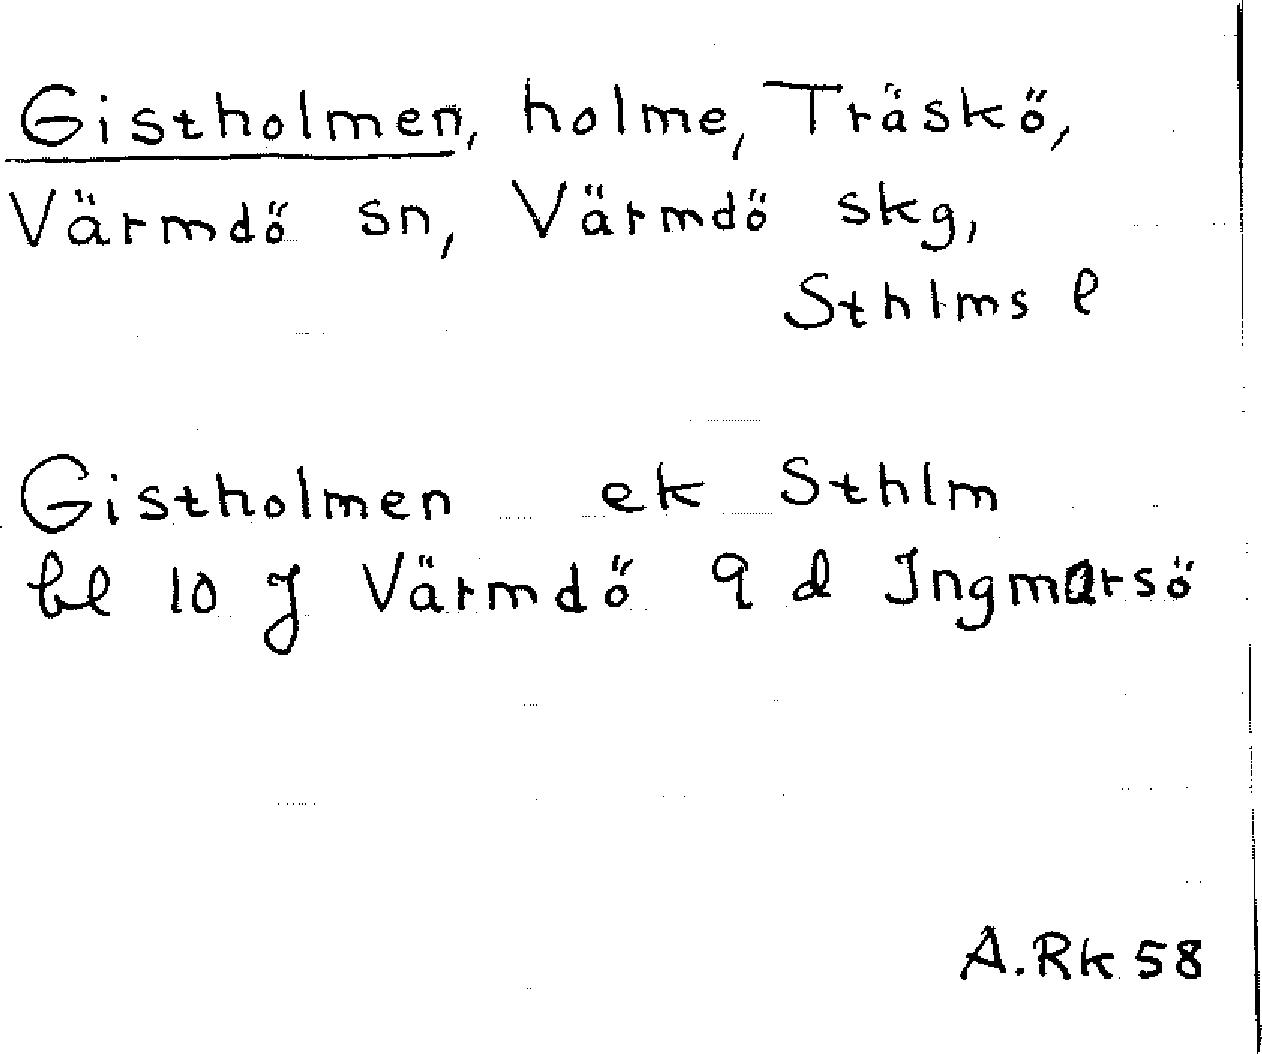 Gistholmen, holme, Träskö,
Värmdö sn, Värmdö skg,
Sthlms l
Gistholmen ek Sthlm
bl 10 J Värmdö 9 d Ingmarsö
A.Rk 58